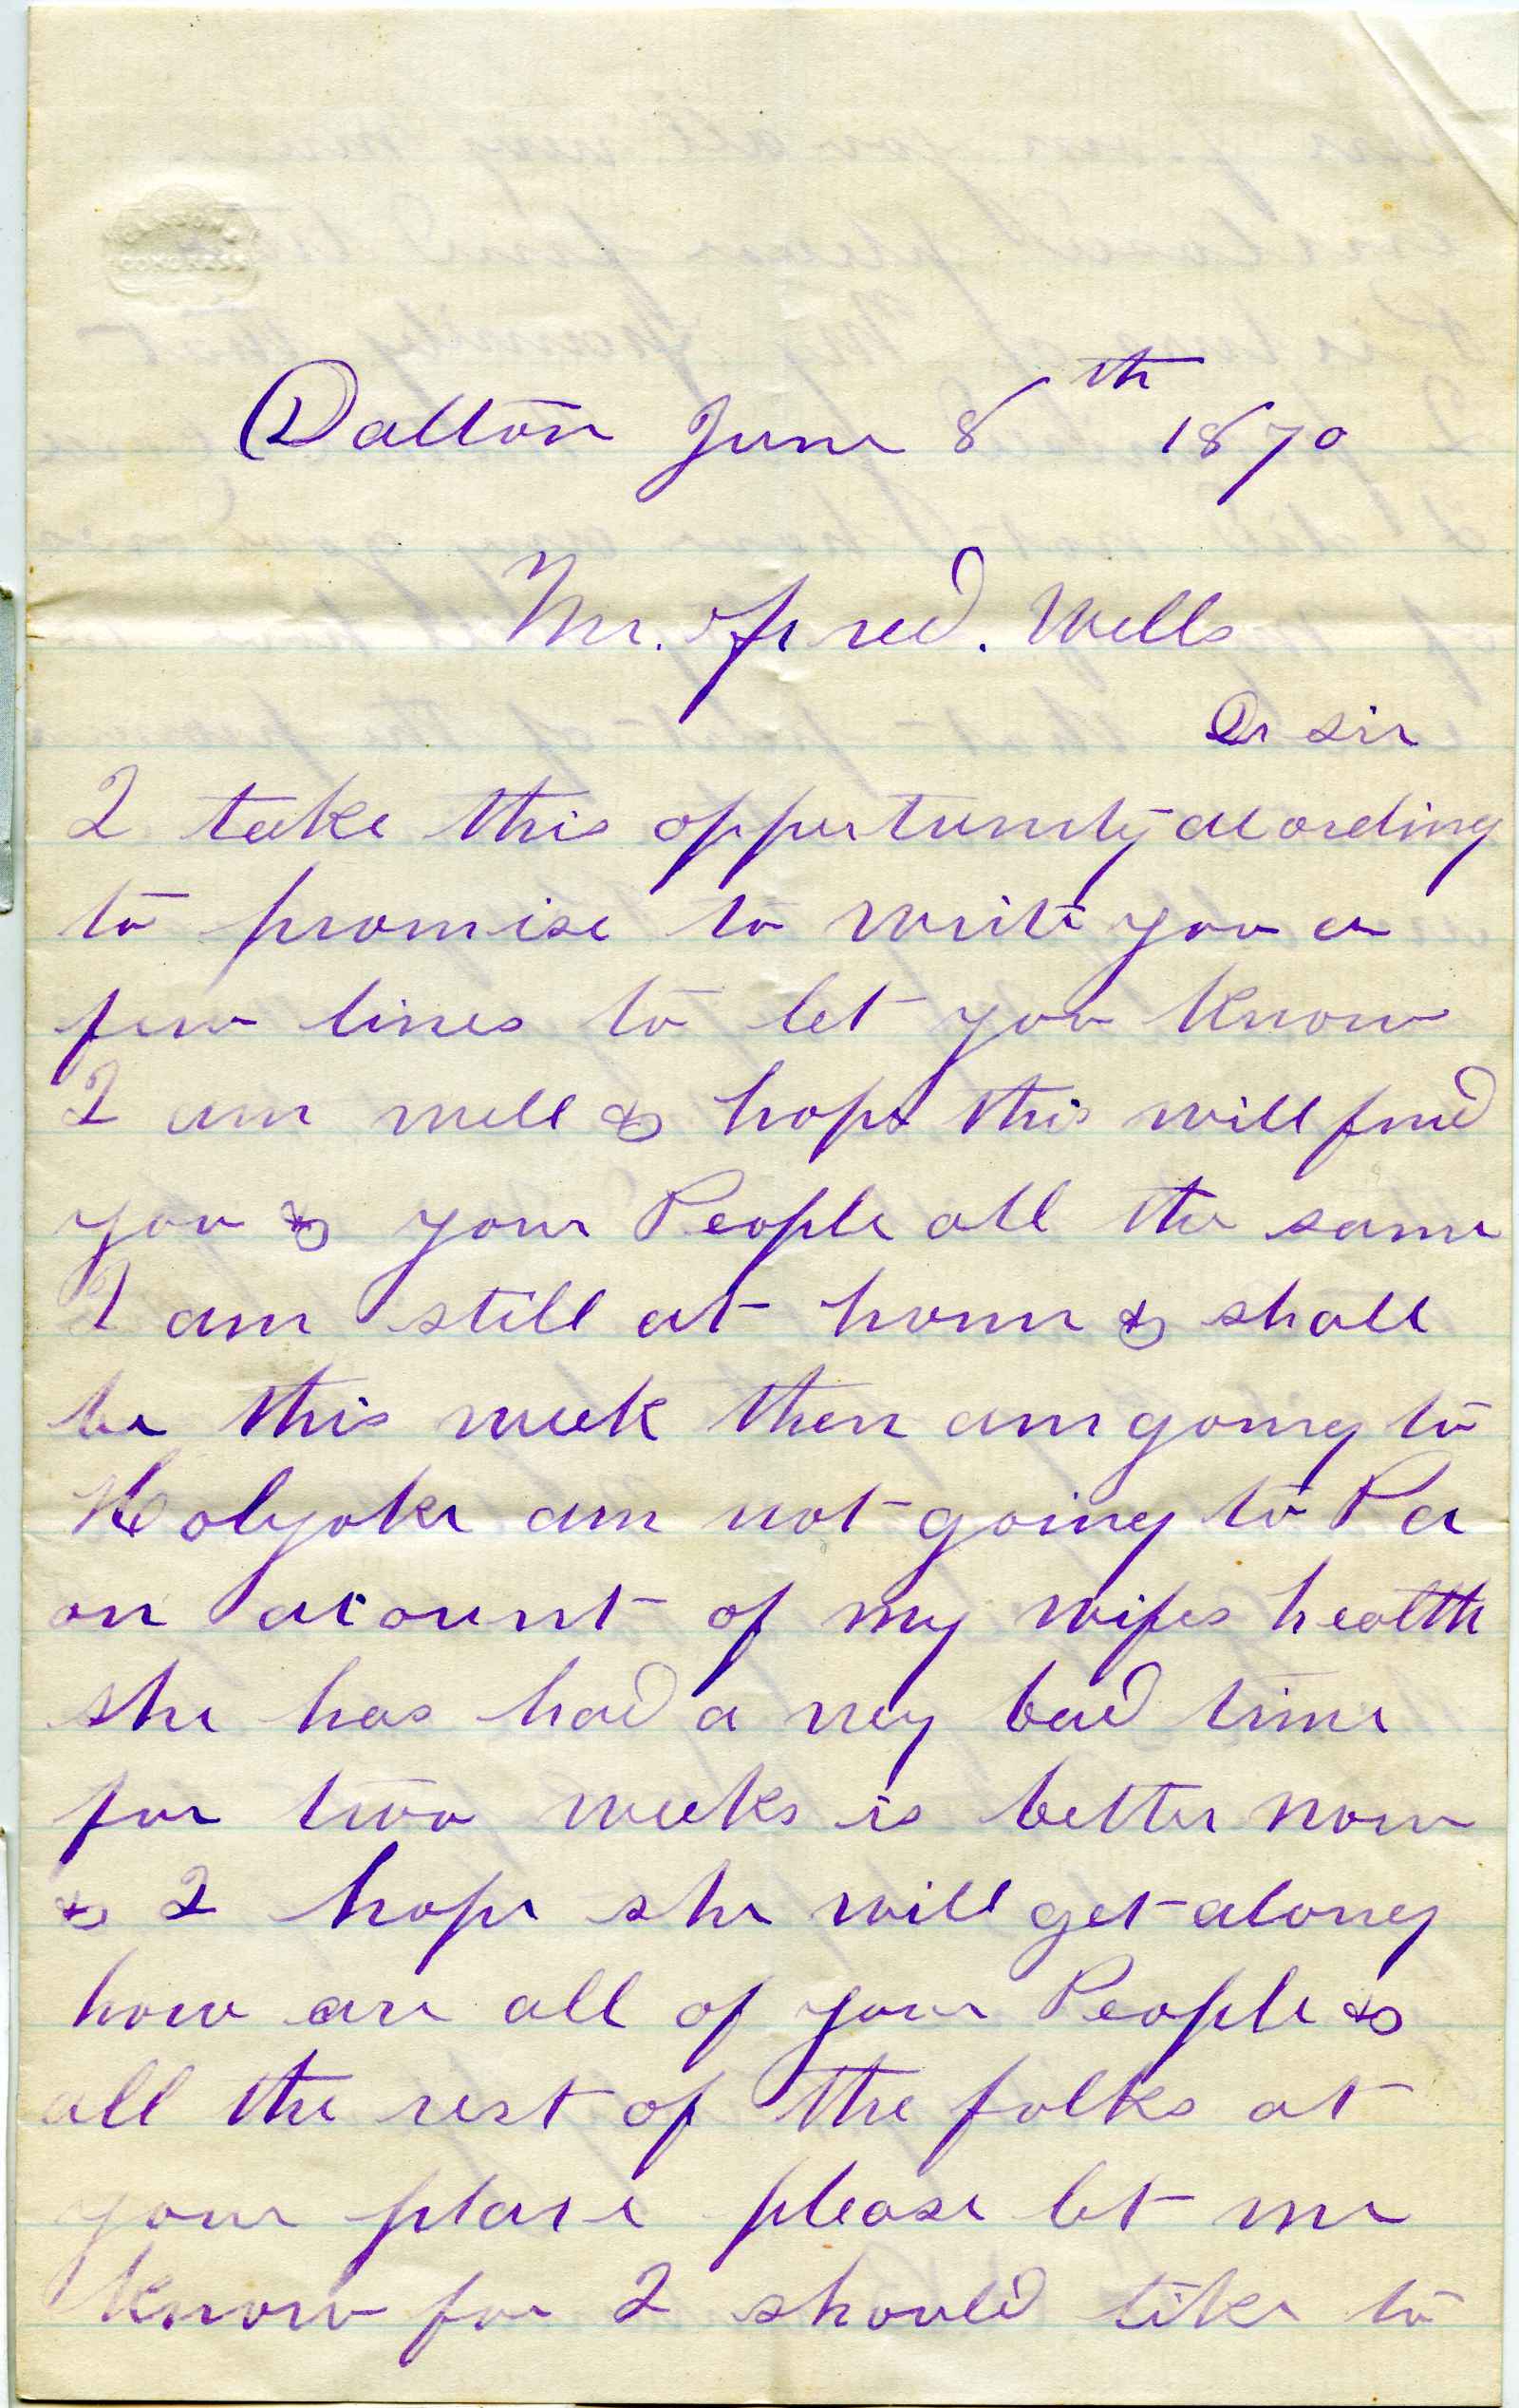 Dalton June 8th 1870
Mr. Fred. Wells
Dr sir
I take this oppertunity acording
to promise to write you a
few lines to let you Know
I am well & hope this will find
you & your People all the same
I am still at home & shall
be this week then am going to
Holyoke am not going to Pa
on acount of my wifes health
she has had a very bad time
for two weeks is better now
& I hope she will get along
how are all of your People &
all the rest of the folks at
your place please let me
Know for I should like to